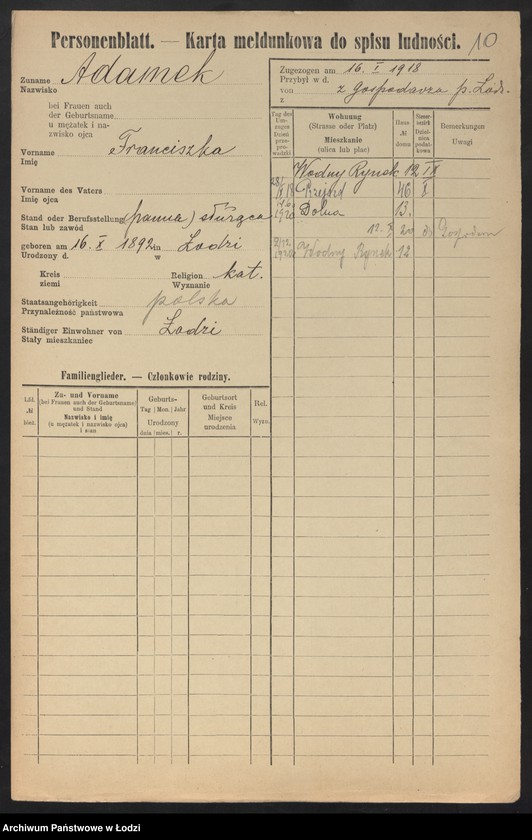 Personenblatt. — Karta meldunkowa do spisu ludności. 10
Zuname Adamek
Nazwisko
bei Frauen auch
der Geburtsname
u mężatek i na-
zwisko ojca
Vorname Franciszka
Imię
Vorname des Vaters
Imię ojca
Stand oder Berufsstellung (panna) służąca
Stan lub zawód
geboren am 16. X 1892 in Łodzi
Urodzony d. w
Kreis Religion kat.
ziemi Wyznanie
Staatsangehörigkeit polska
Przynależność państwowa
Ständiger Einwohner von Łodzi
Stały mieszkaniec
Familienglieder. — Członkowie rodziny.
Lfd. № bież.
Zu- und Vorname
(bei Frauen auch der Geburtsname)
und Stand
Nazwisko i imię
(u mężatek i nazwisko ojca)
i stan
Geburts-
Tag Mon. Jahr
Urodzony
dnia mies. r.
Geburtsort
und Kreis
Miejsce
urodzenia
Rel.
Wyzn.
Zugezogen am 16. I 1918
Przybył w d.
von z Gospodarza p. Łodz.
z
Tag des Um-
zuges
Dzień
prze-
prowadzki
Wohnung
(Strasse oder Platz)
Mieszkanie
(ulica lub plac)
Haus
№
domu
Steuer-
bezirk
Dziel-
nica
podat-
kowa
Bemerkungen
Uwagi
Wodny Rynek 12 IX
Przejazd 46 X
1920 Dolna 13.
11. X 20 Gospodarz
Wodny Rynek 12
Archiwum Państwowe w Łodzi